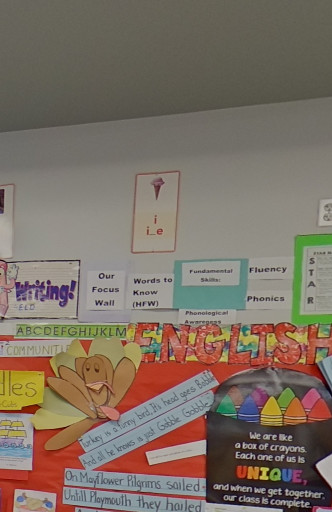 i
i_e
Our
Focus
Wall
Words to
Know
(HFW)
Fundamental
Skills:
Fluency
Phonics
Phonological
Awareness
STAR
Writing!
ELD
ABCDEFGHIJKLM
ENGLISH
COMMUNITI
dles
Turkey is a funny bird, It's head goes
And all he knows is just Gobble Gobble
On Mayflower Pilgrims sailed
Until Playmouth they hailed
We are like
a box of crayons.
Each one of us is
UNIQUE,
and when we get together,
our class is complete.